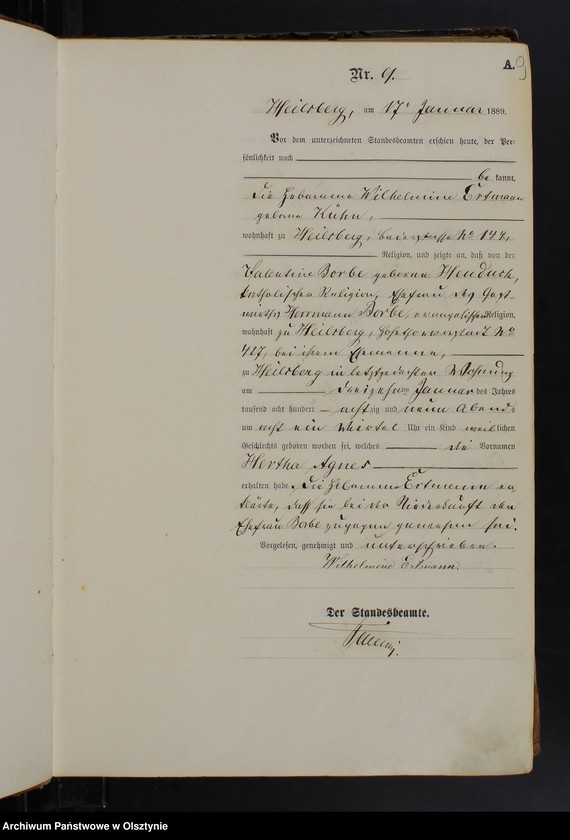 A. 9
Nr. 9.
Heilsberg, am 17t Januar 1889.
Vor dem unterzeichneten Standesbeamten erschien heute, der Per-
sönlichkeit nach
be kannt,
die Hebamme Wilhelmine Ertmann
geborne Kühn,
wohnhaft zu Heilsberg, No 147,
Religion, und zeigte an, daß von der
Valentine Borbe geborenen Henduck,
katholischer Religion, Ehefrau des Gast-
wirths Herrmann Borbe, evangelischer Religion,
wohnhaft zu Heilsberg, No
427, bei ihrem Ehemanne,
zu Heilsberg in letztgedachter Wohnung
am dreizehnten Januar des Jahres
tausend acht hundert achtzig und neun Abends
um acht ein Viertel Uhr ein Kind weiblichen
Geschlechts geboren worden sei, welches die Vornamen
Hertha Agnes
erhalten habe. Die Hebamme Ertmann er-
klärte, daß sie bei der Niederkunft der
Ehefrau Borbe zugegen gewesen sei.
Vorgelesen, genehmigt und unterschrieben.
Wilhelmine Ertmann.
Der Standesbeamte.
Archiwum Państwowe w Olsztynie